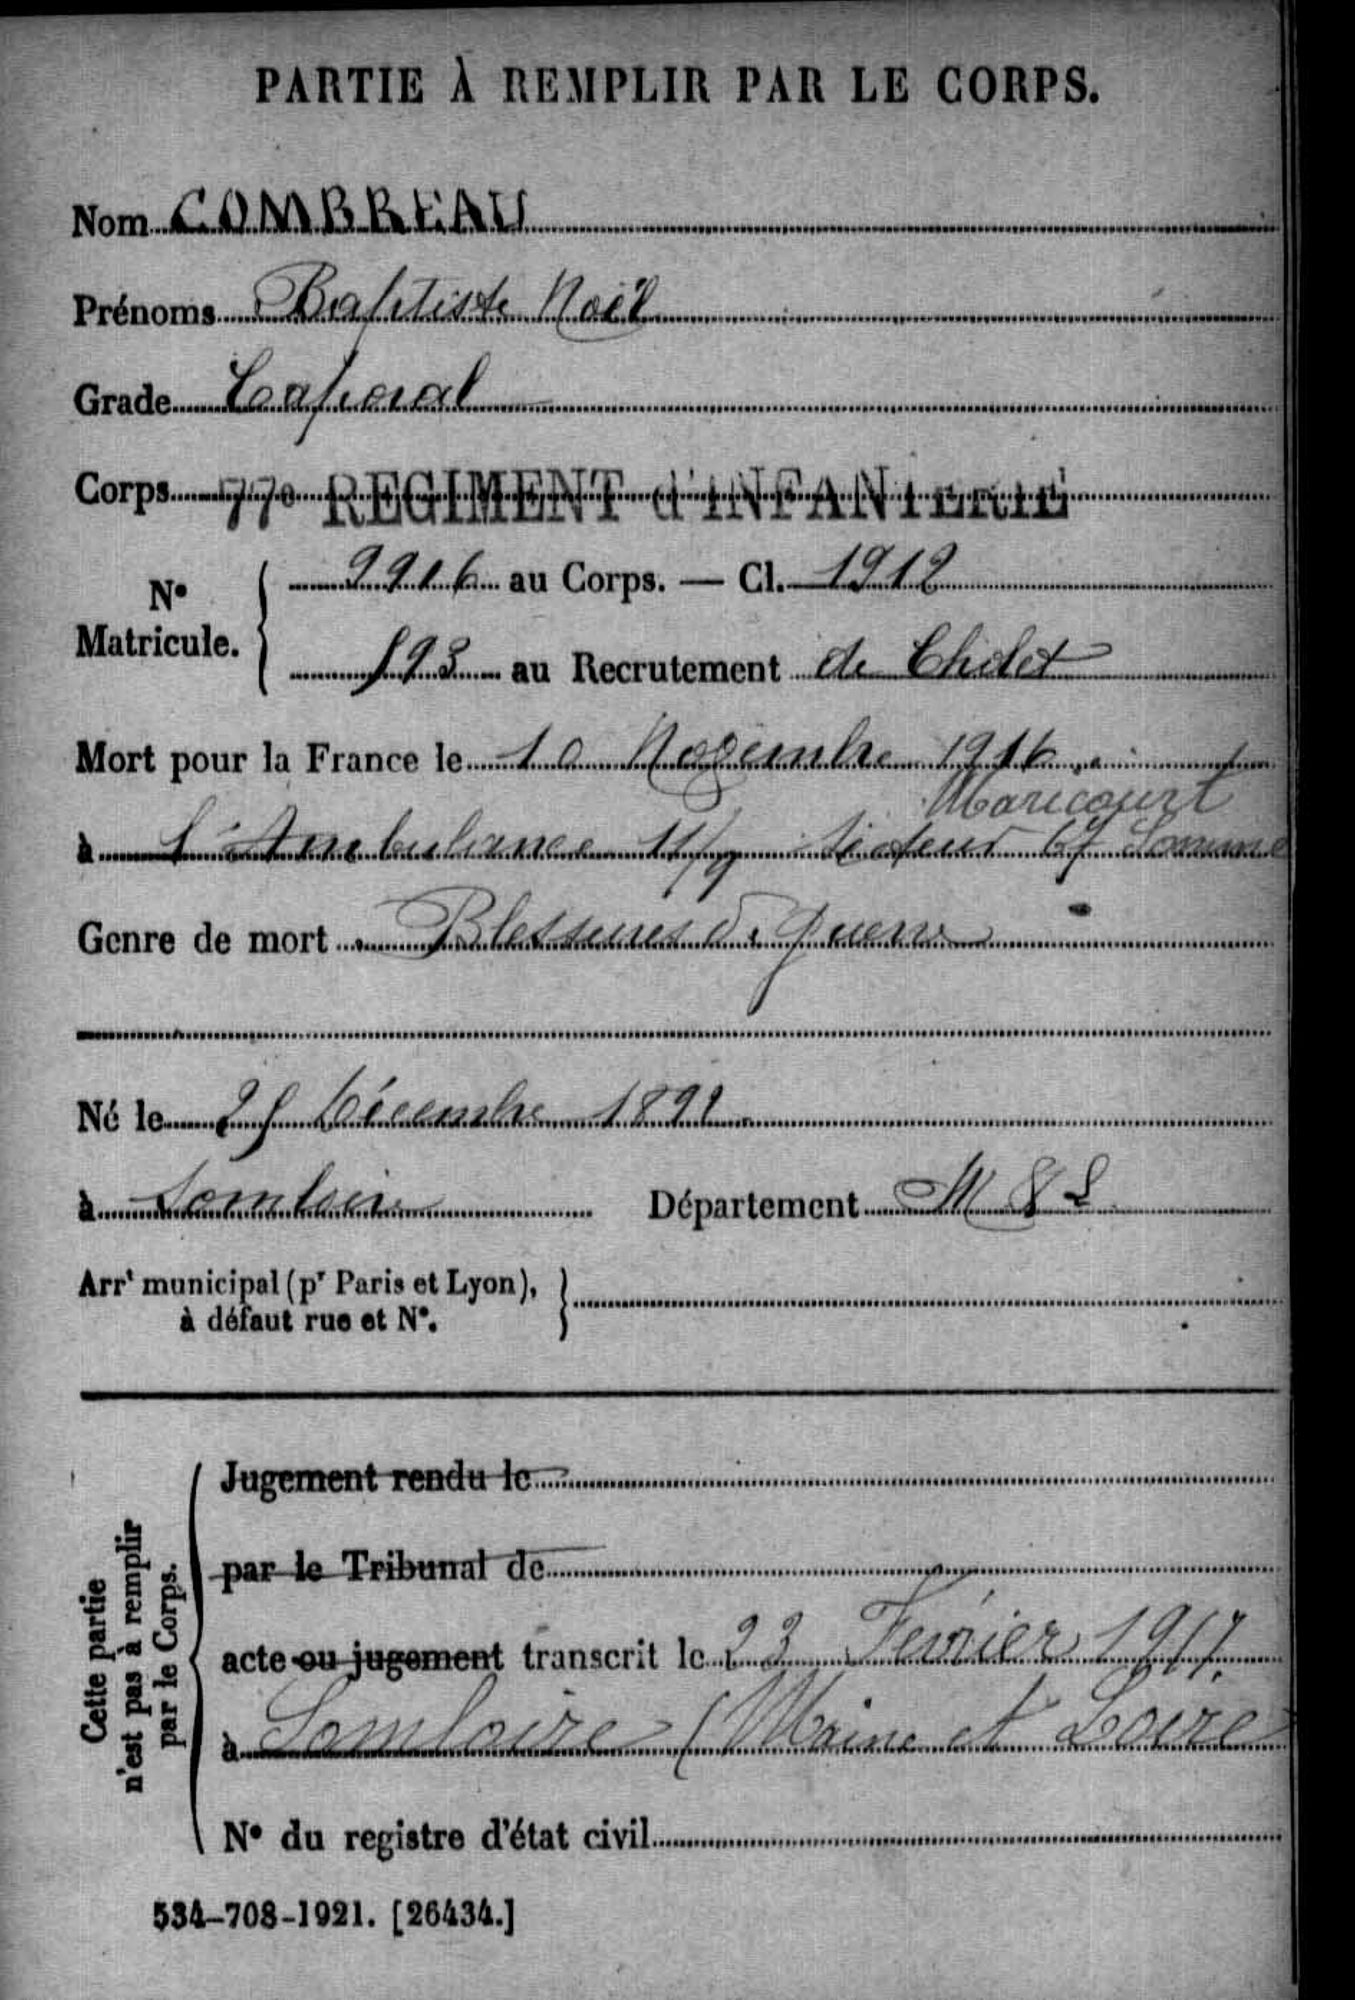 PARTIE À REMPLIR PAR LE CORPS.
Nom COMBREAU
Prénoms Baptiste Noël
Grade Caporal
Corps 77e REGIMENT d'INFANTERIE
No Matricule. { 9916 au Corps. — Cl. 1912
593 au Recrutement de Cholet
Mort pour la France le 10 Novembre 1916
Maricourt
à l'Ambulance 11/9 Secteur 67 Somme
Genre de mort Blessures de guerre
Né le 25 Décembre 1892
à Somloire Département M & L
Arrt municipal (pr Paris et Lyon),
à défaut rue et No.
Cette partie
n'est pas à remplir
par le Corps.
Jugement rendu le
par le Tribunal de
acte ou jugement transcrit le 23 Fevrier 1917.
à Somloire (Maine et Loire
No du registre d'état civil
534-708-1921. [26434.]